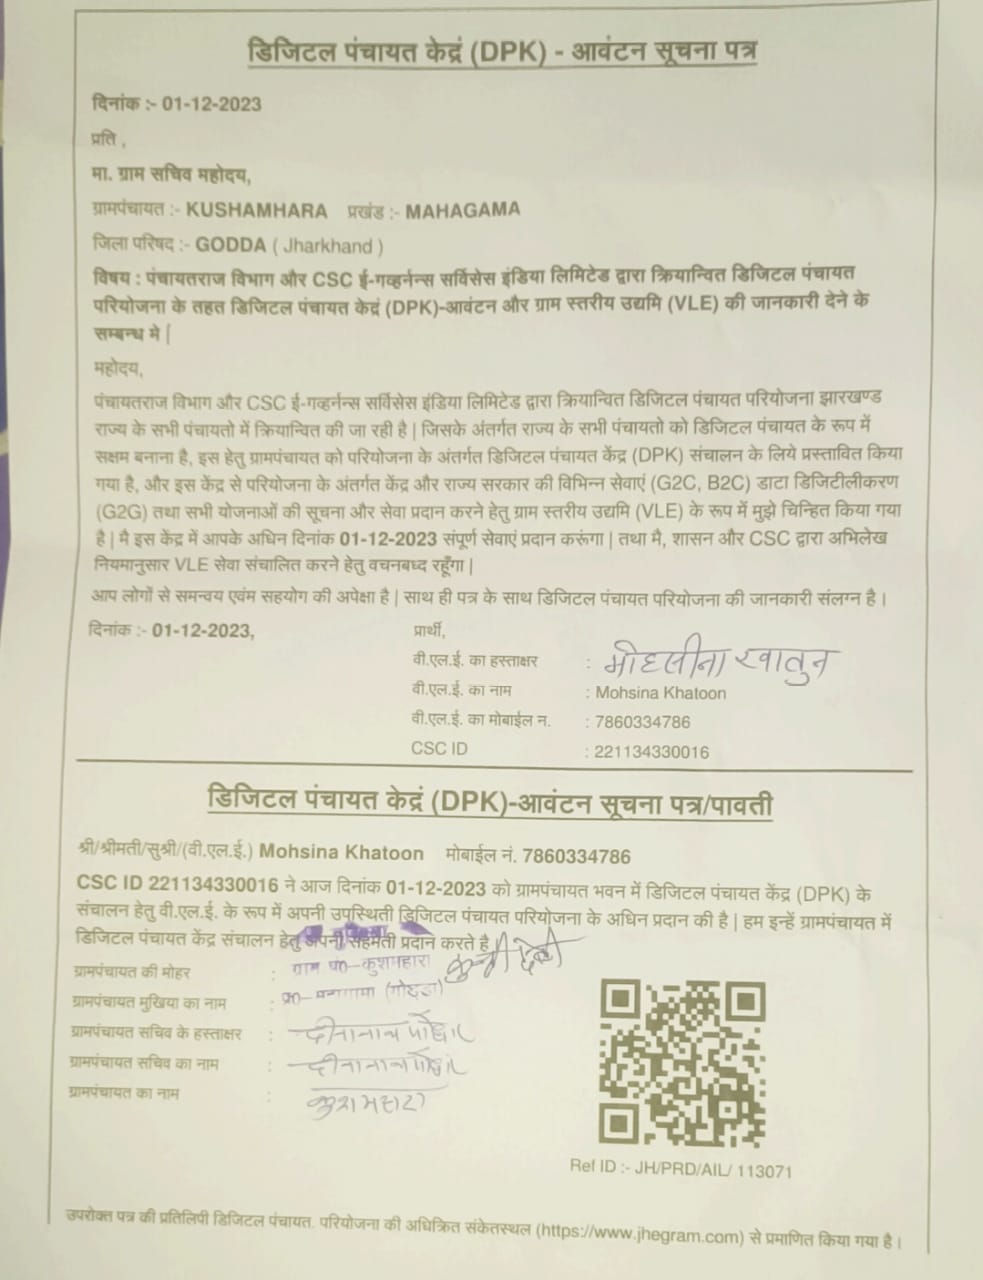 डिजिटल पंचायत केद्रं (DPK) - आवंटन सूचना पत्र
दिनांक :- 01-12-2023
प्रति ,
मा. ग्राम सचिव महोदय,
ग्रामपंचायत :- KUSHAMHARA प्रखंड :- MAHAGAMA
जिला परिषद :- GODDA ( Jharkhand )
विषय : पंचायतराज विभाग और CSC ई-गव्हर्नन्स सर्विसेस इंडिया लिमिटेड द्वारा क्रियान्वित डिजिटल पंचायत
परियोजना के तहत डिजिटल पंचायत केद्रं (DPK)-आवंटन और ग्राम स्तरीय उद्यमि (VLE) की जानकारी देने के
सम्बन्ध मे |
महोदय,
पंचायतराज विभाग और CSC ई-गव्हर्नन्स सर्विसेस इंडिया लिमिटेड द्वारा क्रियान्वित डिजिटल पंचायत परियोजना झारखण्ड
राज्य के सभी पंचायतो में क्रियान्वित की जा रही है | जिसके अंतर्गत राज्य के सभी पंचायतो को डिजिटल पंचायत के रूप में
सक्षम बनाना है, इस हेतु ग्रामपंचायत को परियोजना के अंतर्गत डिजिटल पंचायत केंद्र (DPK) संचालन के लिये प्रस्तावित किया
गया है, और इस केंद्र से परियोजना के अंतर्गत केंद्र और राज्य सरकार की विभिन्न सेवाएं (G2C, B2C) डाटा डिजिटीलीकरण
(G2G) तथा सभी योजनाओं की सूचना और सेवा प्रदान करने हेतु ग्राम स्तरीय उद्यमि (VLE) के रूप में मुझे चिन्हित किया गया
है | मै इस केंद्र में आपके अधिन दिनांक 01-12-2023 संपूर्ण सेवाएं प्रदान करूंगा | तथा मै, शासन और CSC द्वारा अभिलेख
नियमानुसार VLE सेवा संचालित करने हेतु वचनबध्द रहूँगा |
आप लोगों से समन्वय एवंम सहयोग की अपेक्षा है | साथ ही पत्र के साथ डिजिटल पंचायत परियोजना की जानकारी संलग्न है ।
दिनांक :- 01-12-2023, प्रार्थी,
वी.एल.ई. का हस्ताक्षर : मोहसीना खातुन
वी.एल.ई. का नाम : Mohsina Khatoon
वी.एल.ई. का मोबाईल न. : 7860334786
CSC ID : 221134330016
डिजिटल पंचायत केद्रं (DPK)-आवंटन सूचना पत्र/पावती
श्री/श्रीमती/सुश्री/(वी.एल.ई.) Mohsina Khatoon मोबाईल नं. 7860334786
CSC ID 221134330016 ने आज दिनांक 01-12-2023 को ग्रामपंचायत भवन में डिजिटल पंचायत केंद्र (DPK) के
संचालन हेतु वी.एल.ई. के रूप में अपनी उपस्थिती डिजिटल पंचायत परियोजना के अधिन प्रदान की है | हम इन्हें ग्रामपंचायत में
डिजिटल पंचायत केंद्र संचालन हेतु अपनी सहमती प्रदान करते है
ग्रामपंचायत की मोहर : ग्राम पं०-कुशमहारा
ग्रामपंचायत मुखिया का नाम : प्र०-महागामा (गोड्डा)
ग्रामपंचायत सचिव के हस्ताक्षर : दीनानाथ
ग्रामपंचायत सचिव का नाम : दीनानाथ
ग्रामपंचायत का नाम : कुशमहारा
Ref ID :- JH/PRD/AIL/ 113071
उपरोक्त पत्र की प्रतिलिपी डिजिटल पंचायत. परियोजना की अधिक्रित संकेतस्थल (https://www.jhegram.com) से प्रमाणित किया गया है ।